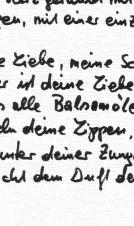 gen, mit einer ein
e Liebe, meine Sc
r ist deine Liebe
s alle Balsamöle
ln deine Lippen,
unter deiner Zung
cht dem Duft de